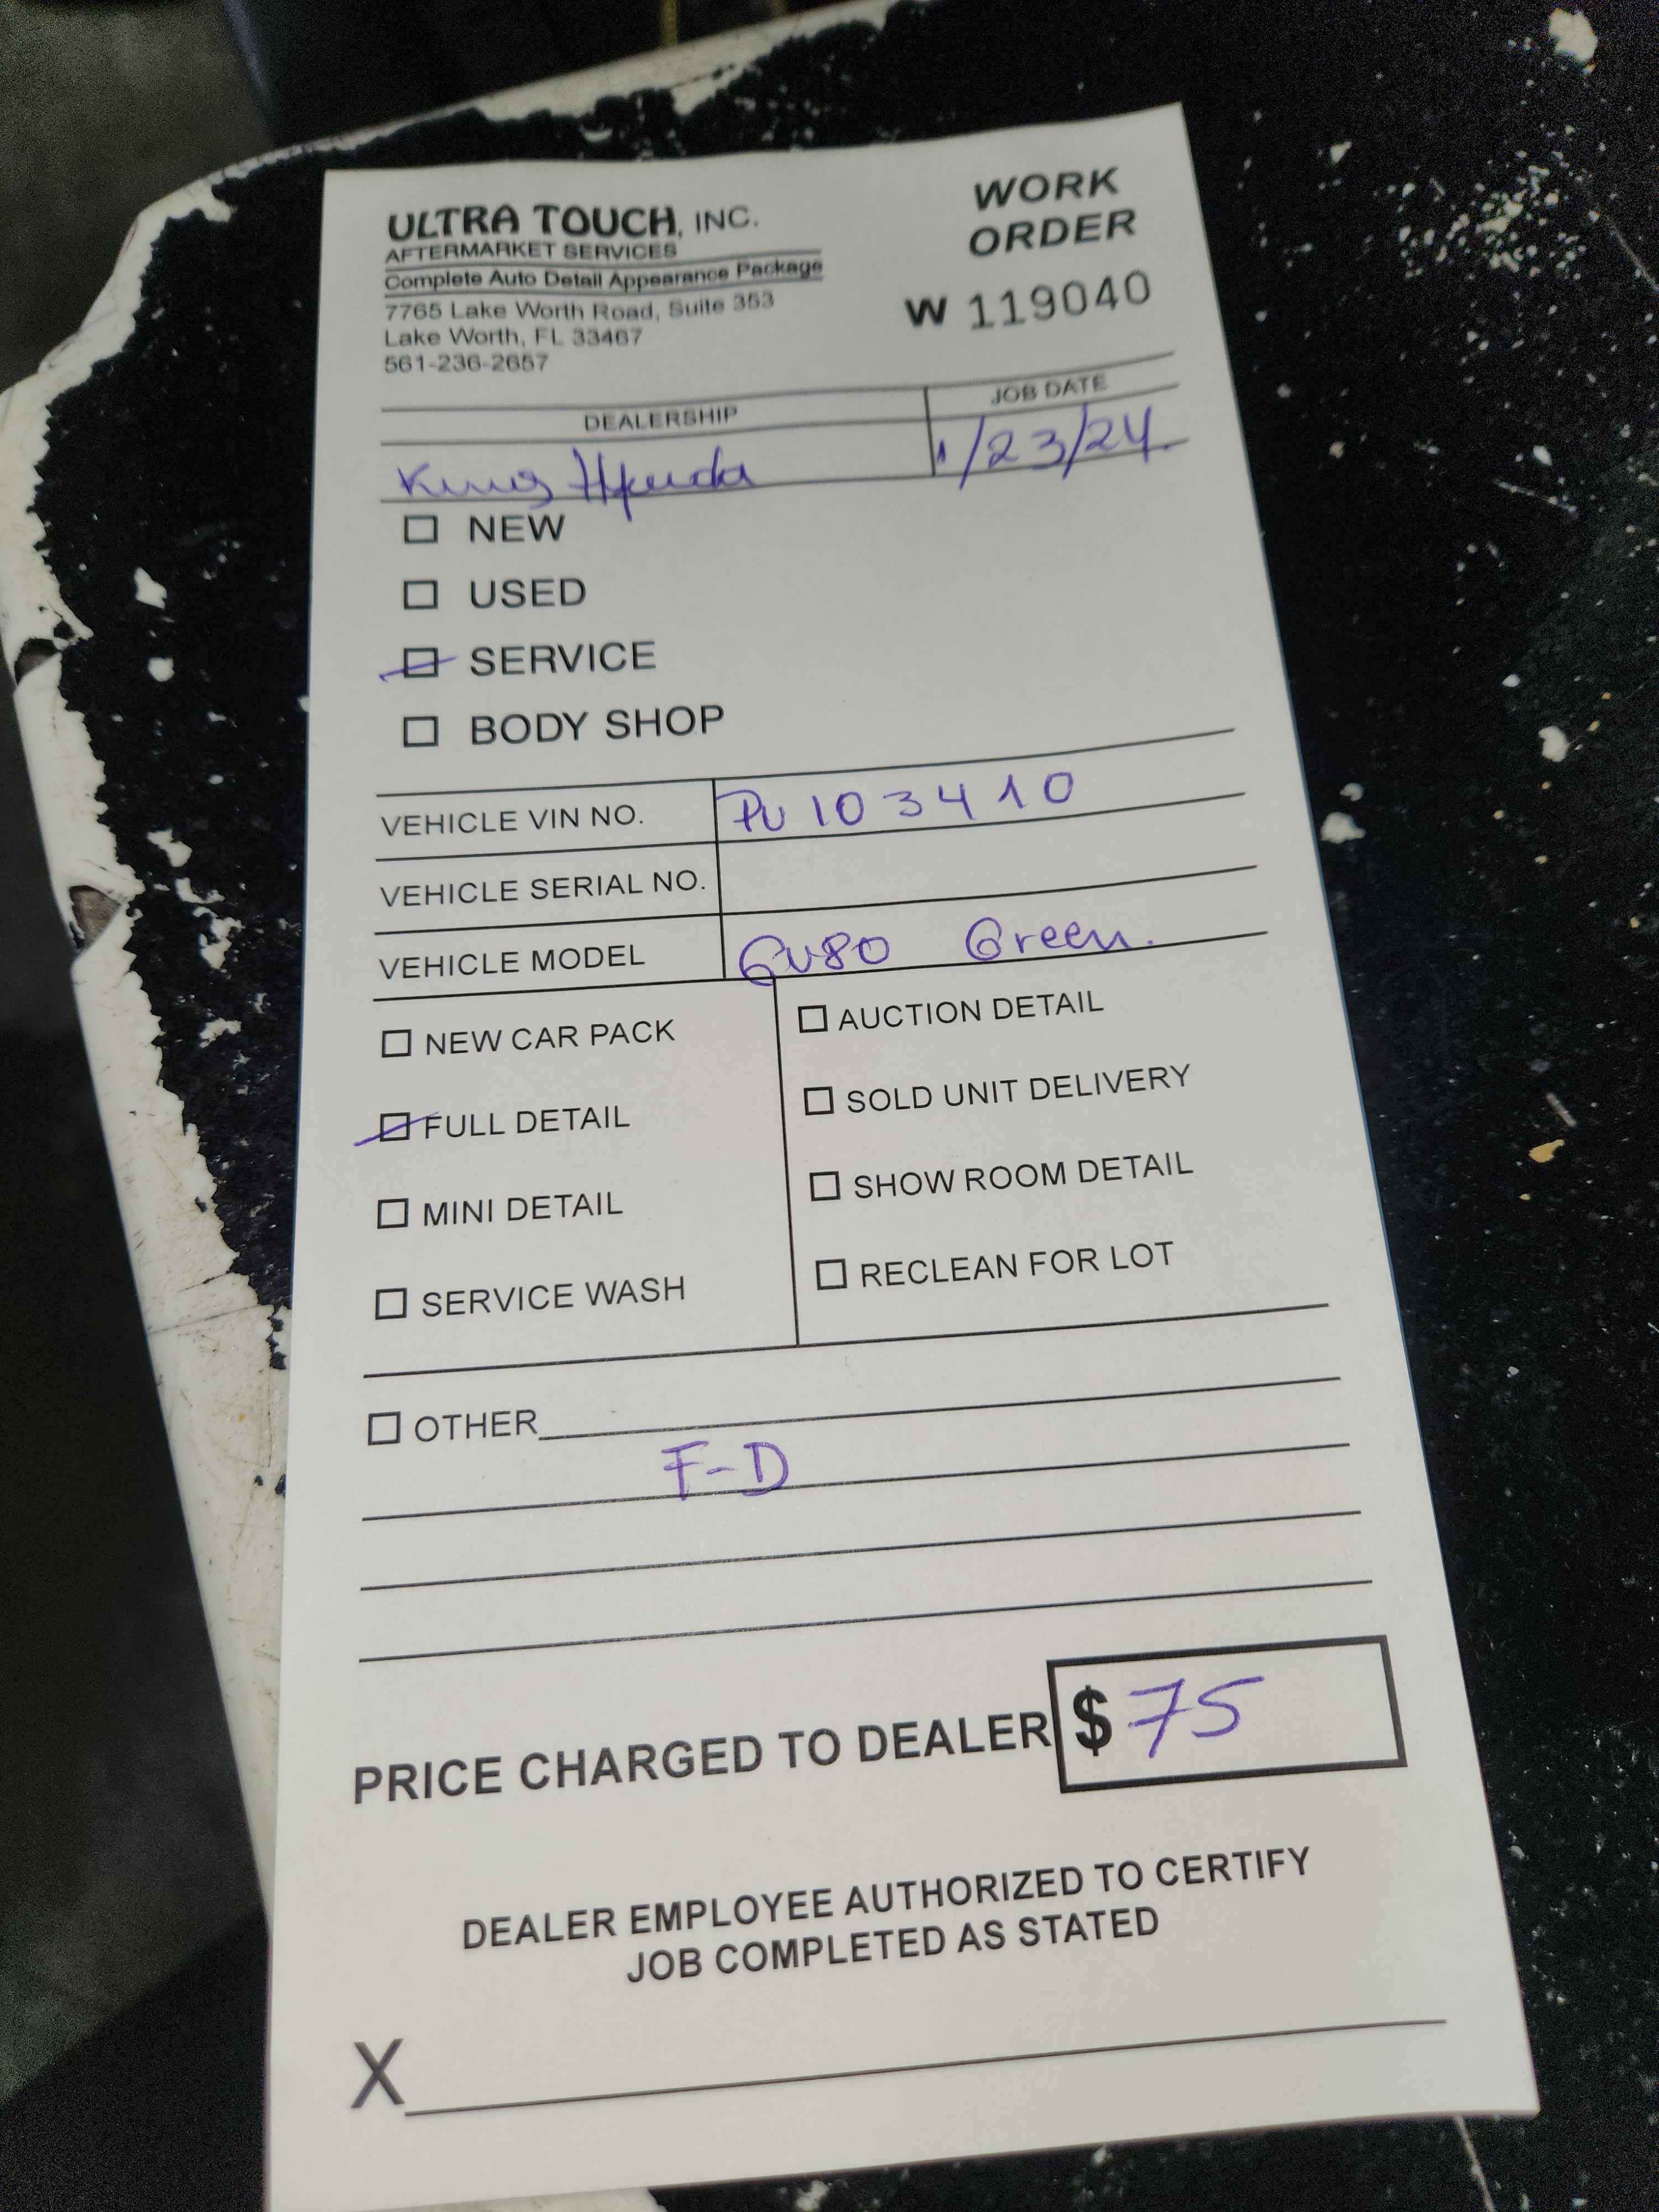 ULTRA TOUCH, INC.
AFTERMARKET SERVICES
Complete Auto Detail Appearance Package
7765 Lake Worth Road, Suite 353
Lake Worth, FL 33467
561-236-2657
WORK
ORDER
W 119040
DEALERSHIP
JOB DATE
King
1/23/24
NEW
USED
SERVICE
BODY SHOP
VEHICLE VIN NO. PU103410
VEHICLE SERIAL NO.
VEHICLE MODEL GV80 Green.
NEW CAR PACK
FULL DETAIL
MINI DETAIL
SERVICE WASH
AUCTION DETAIL
SOLD UNIT DELIVERY
SHOW ROOM DETAIL
RECLEAN FOR LOT
OTHER
F-D
PRICE CHARGED TO DEALER $ 75
DEALER EMPLOYEE AUTHORIZED TO CERTIFY
JOB COMPLETED AS STATED
X